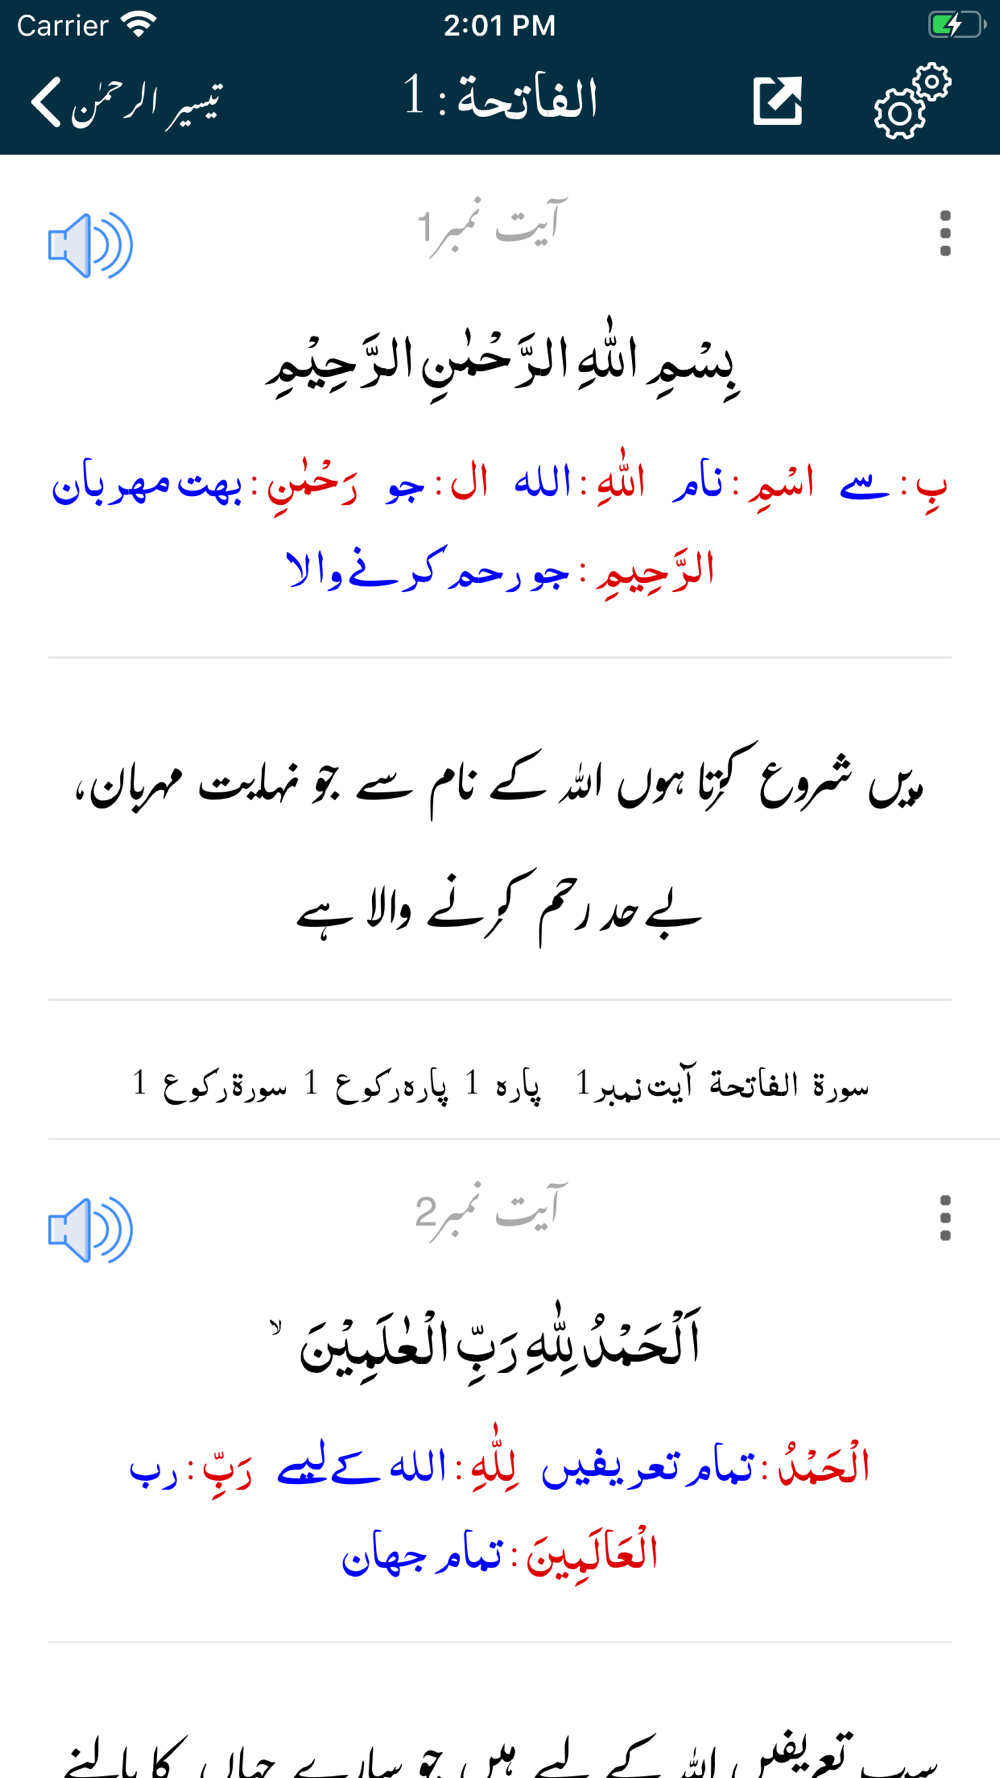 Carrier 2:01 PM
تیسیر الرحمٰن
الفاتحة : 1
آیت نمبر1
بِسْمِ اللّٰهِ الرَّحْمٰنِ الرَّحِيْمِ
بِ : سے اسْمِ : نام اللّٰهِ : الله ال : جو رَحْمٰنِ : بهت مهربان
الرَّحِيمِ : جو رحم کرنے والا
میں شروع کرتا ہوں اللہ کے نام سے جو نہایت مہربان،
بے حد رحم کرنے والا ہے
سورة الفاتحة آیت نمبر1 پاره 1 پاره رکوع 1 سورة رکوع 1
آیت نمبر2
اَلْحَمْدُ لِلّٰهِ رَبِّ الْعٰلَمِيْنَ ۙ
الْحَمْدُ : تمام تعریفیں لِلّٰهِ : الله کے لیے رَبِّ : رب
الْعَالَمِينَ : تمام جهان
سب تعریفیں اللہ کے لیے ہیں جو سارے جہاں کا پالنے